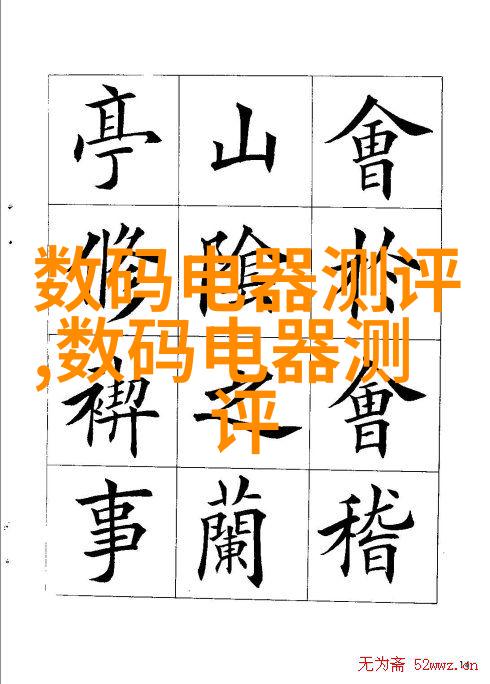 會於會稽
山陰之蘭
亭修禊事
数码电器测评
,数码电器测
评
无为斋 52wwz.cn